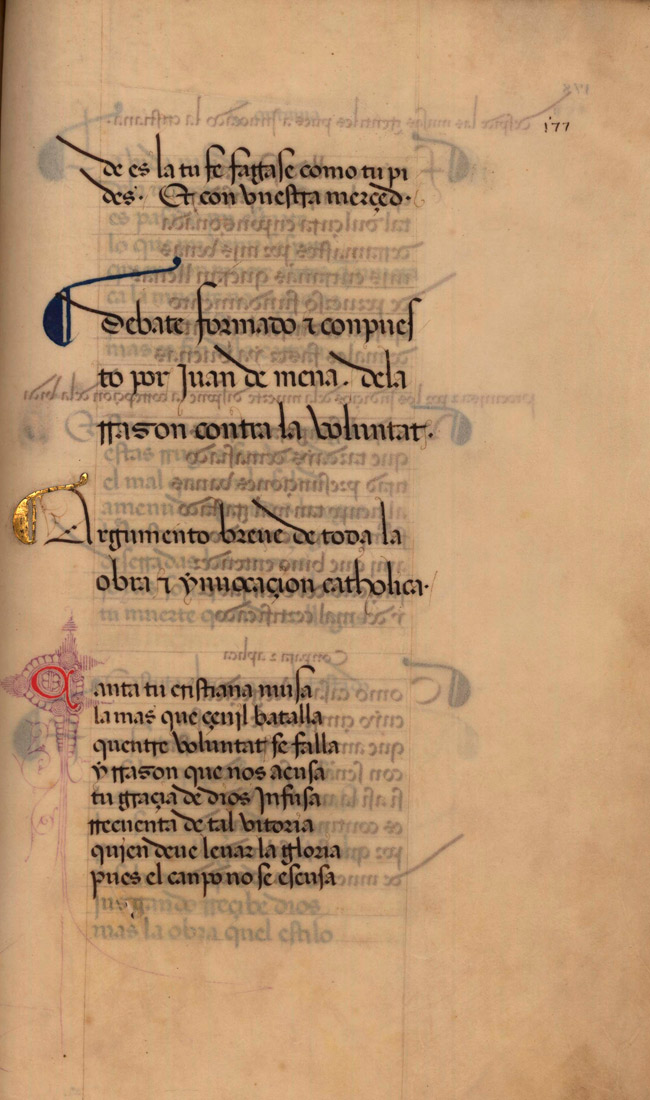 177
de es la tu fe fagase como tu pi
des. Et con vuestra merçed.
Debate formado τ conpues
to por Juan de mena. de la
rrason contra la voluntat.
Argumento breue de toda la
obra τ ynuocaçion catholica.
Canta tu cristiana musa
la mas que çeujl batalla
quentre voluntat se falla
y rrason que nos acusa
tu graçia de dios Jnfusa
rrecuenta de tal vitoria
qujen deue leuar la gloria
pues el canpo no se escusa